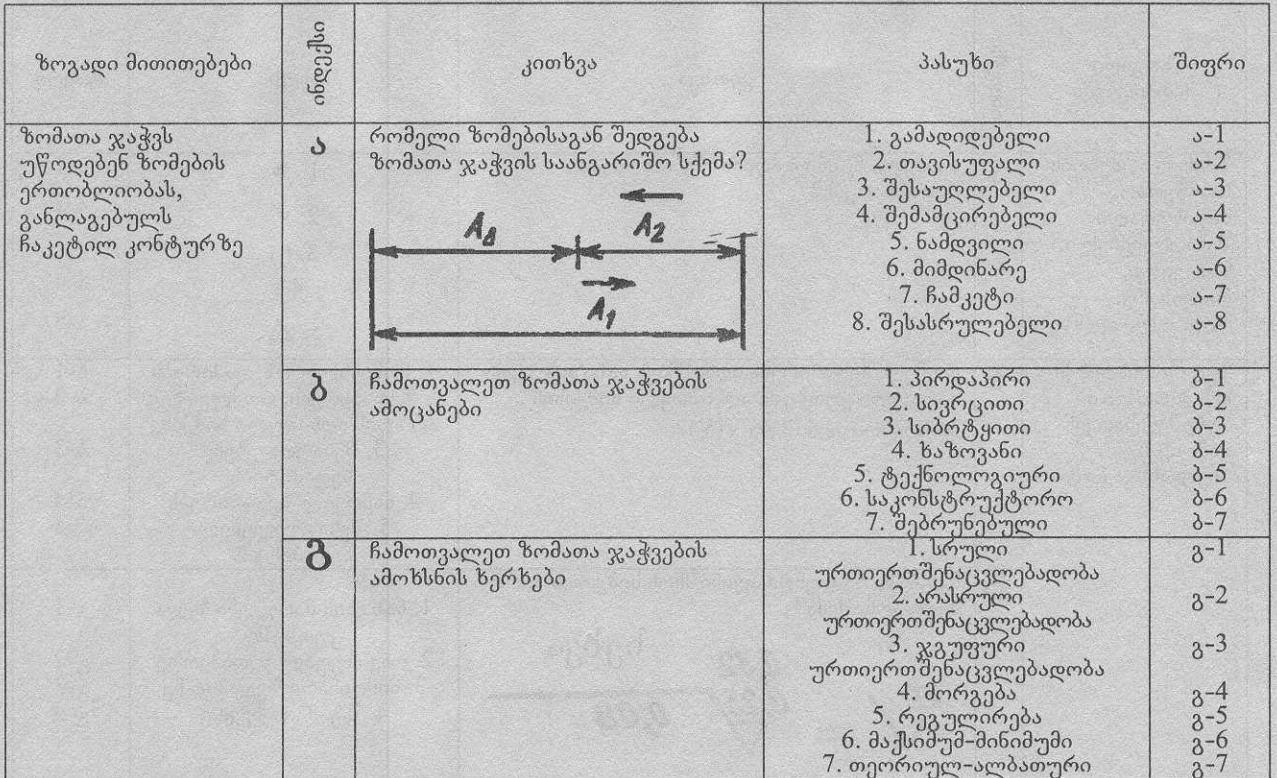 ზოგადი მითითებები
ინდექსი
კითხვა
პასუხი
შიფრი
ზომათა ჯაჭვს
უწოდებენ ზომების
ერთობლიობას,
განლაგებულს
ჩაკეტილ კონტურზე
ა
რომელი ზომებისაგან შედგება
ზომათა ჯაჭვის საანგარიშო სქემა?
A_Δ
A_2
A_1
1. გამადიდებელი ა-1
2. თავისუფალი ა-2
3. შესაუღლებელი ა-3
4. შემამცირებელი ა-4
5. ნამდვილი ა-5
6. მიმდინარე ა-6
7. ჩამკეტი ა-7
8. შესასრულებელი ა-8
ბ
ჩამოთვალეთ ზომათა ჯაჭვების
ამოცანები
1. პირდაპირი ბ-1
2. სივრცითი ბ-2
3. სიბრტყითი ბ-3
4. ხაზოვანი ბ-4
5. ტექნოლოგიური ბ-5
6. საკონსტრუქტორო ბ-6
7. შებრუნებული ბ-7
გ
ჩამოთვალეთ ზომათა ჯაჭვების
ამოხსნის ხერხები
1. სრული გ-1
ურთიერთშენაცვლებადობა
2. არასრული გ-2
ურთიერთშენაცვლებადობა
3. ჯგუფური გ-3
ურთიერთშენაცვლებადობა
4. მორგება გ-4
5. რეგულირება გ-5
6. მაქსიმუმ-მინიმუმი გ-6
7. თეორიულ-ალბათური გ-7